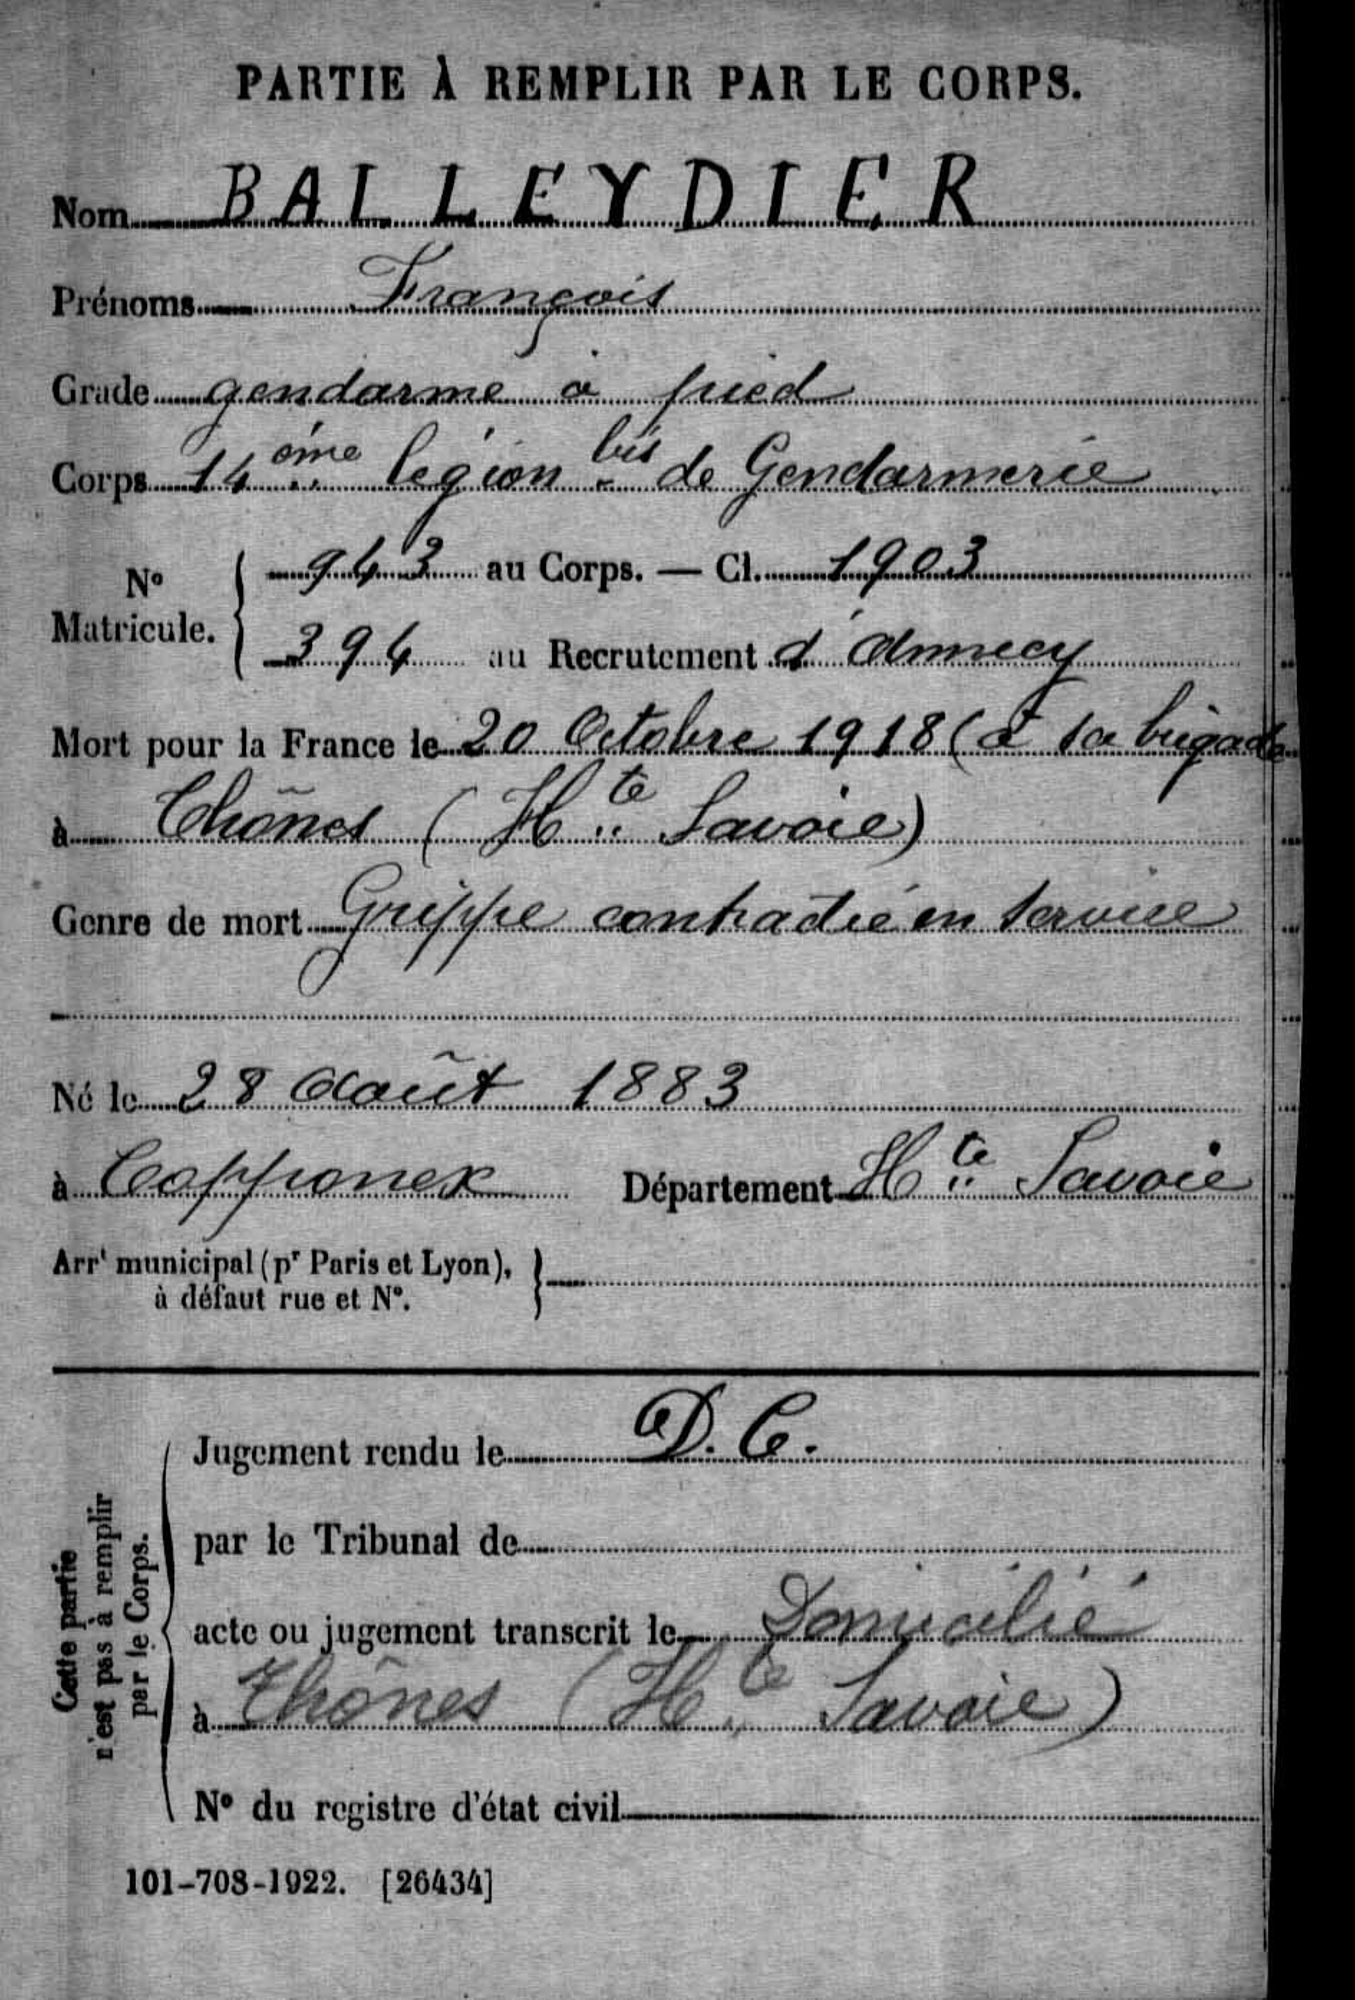 PARTIE À REMPLIR PAR LE CORPS.
Nom BALLEYDIER
Prénoms François
Grade gendarme à pied
Corps 14ème légion bis de Gendarmerie
N° Matricule. 943 au Corps. — Cl. 1903
394 au Recrutement d'Annecy
Mort pour la France le 20 Octobre 1918 (à sa brigade
à Thônes (Hte Savoie)
Genre de mort Grippe contractée en service
Né le 28 Août 1883
à Copponex Département Hte Savoie
Arrt municipal (pr Paris et Lyon),
à défaut rue et N°.
Cette partie
n'est pas à remplir
par le Corps.
Jugement rendu le D.C.
par le Tribunal de
acte ou jugement transcrit le Domicilié
à Thônes (Hte Savoie)
N° du registre d'état civil
101-708-1922. [26434]